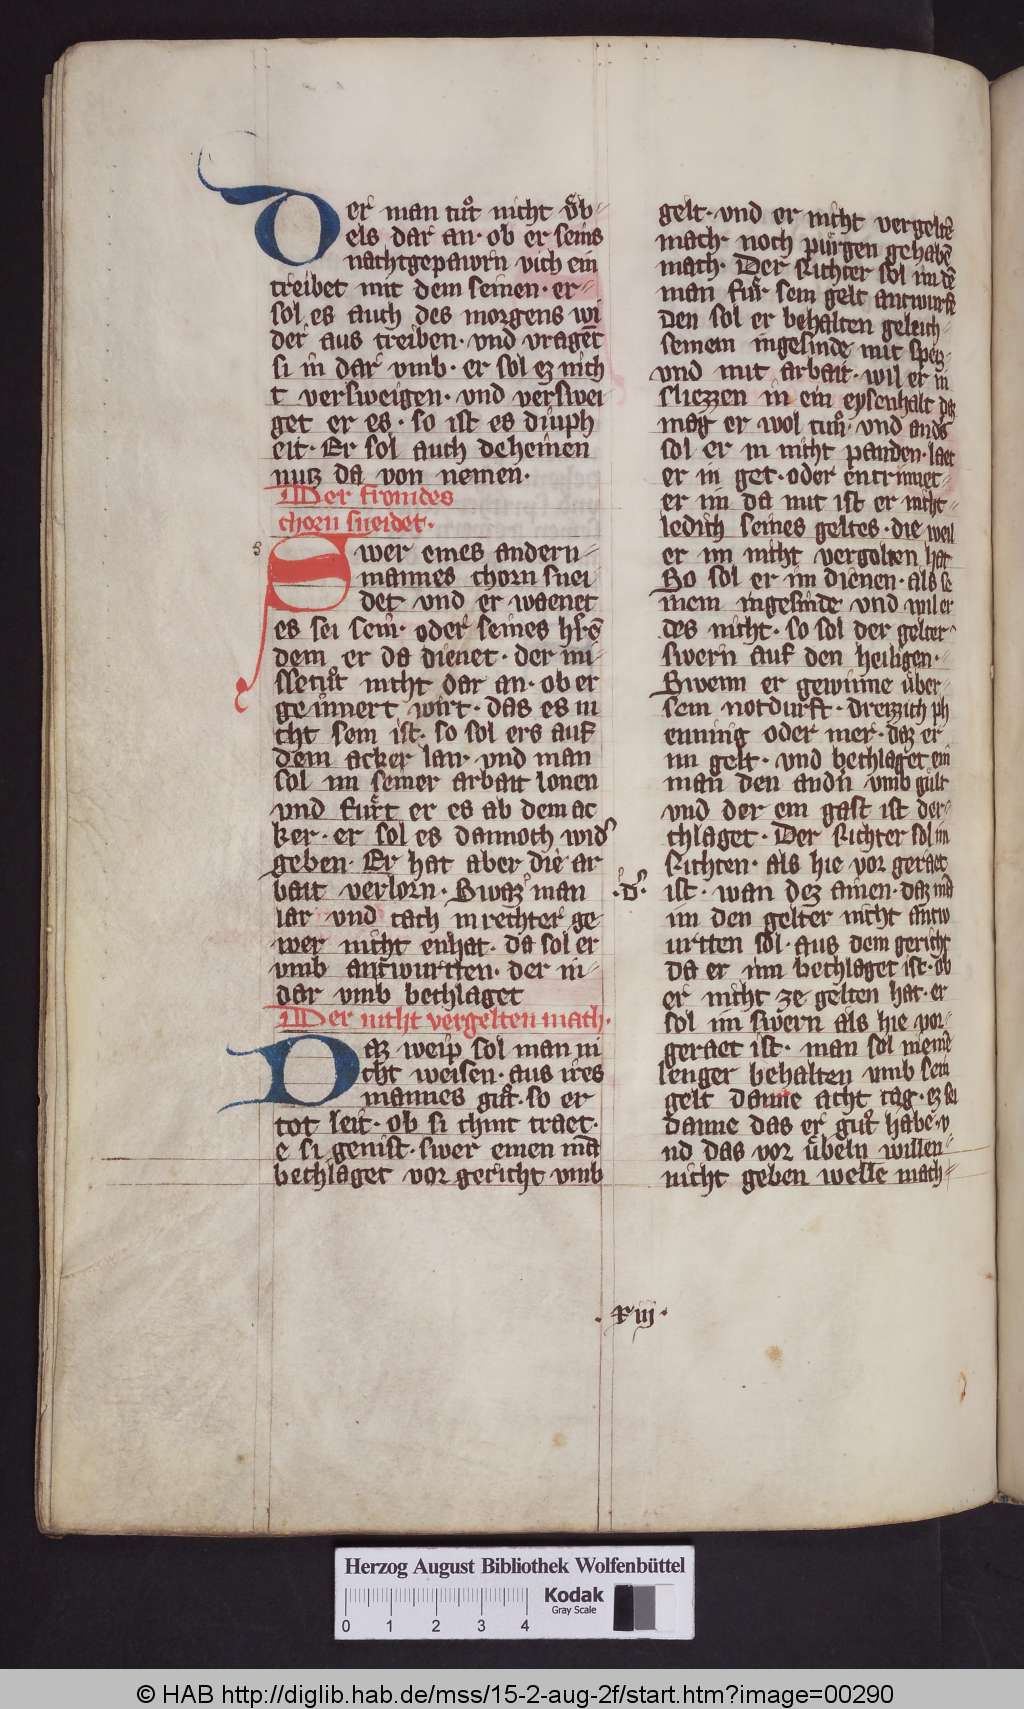 Der man tuͦt nicht vͤb-
els dar an · ob er seins
nachtgepawrn vich ein
treibet mit dem seinen · er-
sol es auch des morgens wi
der aus treiben · vnd vraget
si in dar vmb · er sol ez nich
t versweigen · vnd verswei
get er es · so ist es diuph
eit · Er sol auch deheinen
nutz da von nemen ·
Der fromdes
chorn sneidet ·
s
Swer eines andern-
mannes chorn snei
det vnd er waenet
es sei sein · oder seines h̄re
dem er da dienet · der mi-
ssetuͦt nicht dar an · ob er
ge innert wirt · das es ni
cht sein ist · so sol ers auf
dem acker lan · vnd man
sol im seiner arbait lonen
vnd fuͤrt er es ab dem ac
ker · er sol es dannoch wid
geben · Er hat aber die ar
bait verlorn · Swaz man
iar vnd tach in rechter ge
wer nicht enhat · da sol er
vmb antwurtten · der in-
dar vmb bechlaget
Der nicht vergelten mach ·
Daz weip sol man ni
cht weisen · aus ires
mannes guͦt · so er
tot leit · ob si chint traet ·
e si genist · swer einen mā
bechlaget vor gericht vmb
gelt · vnd er nicht vergeltē
mach · noch puͤrgen gehabē
mach · Der Richter sol im dē
man fuͤr sein gelt antwurtē
Den sol er behalten geleich-
seinem ingesinde mit speiz-
vnd mit arbait · wil er in̄
sliezzen in ein eysenhalt daz
mag er wol tuͦn · vnd anders
sol er in nicht panden · laet
er in get · oder entrinnet-
er im da mit ist er nicht-
ledich seines geltes · die weil
er im nicht vergolten hat
So sol er im dienen · als se
inem ingesinde vnd wil er
des nicht · so sol der gelter
swern auf den heiligen ·
Swenn er gewinne vͤber-
sein notdurft · dreizzich ph
enning oder mer · daz er
im gelt · vnd bechlaget ein
man den andn̄ vmb guͤlt
vnd der ein gast ist der-
chlaget · Der Richter sol im
Richten · als hie vor geraet
· d ·
ist · wan dez ainen · daz mā
im den gelter nicht antw
urtten sol · aus dem gericht
da er inn bechlaget ist · ob
er nicht ze gelten hat · er
sol im swern als hie vor-
geraet ist · man sol niemē
lenger behalten vmb sein
gelt danne acht tag · ez sei
danne das er guͦt habe · v
nd das vor vͤbeln willen-
nicht geben welle mach-
· xiij ·
Herzog August Bibliothek Wolfenbüttel
0 1 2 3 4
Kodak
Gray Scale
© HAB http://diglib.hab.de/mss/15-2-aug-2f/start.htm?image=00290